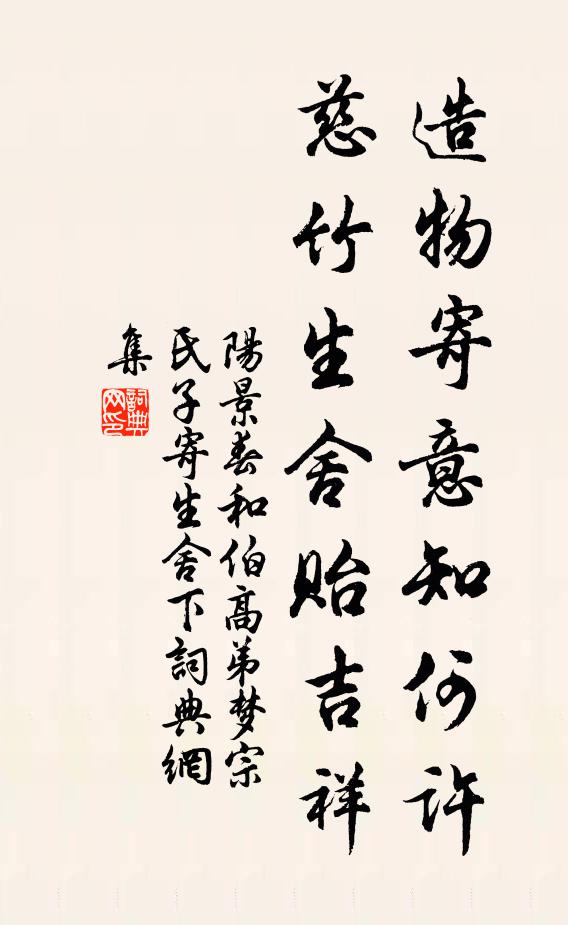 造物寄意知何許
慈竹生舍貽吉祥
陽景春和伯高弟梦宗
氏子寄生舍下詞典網
集
詞典網印